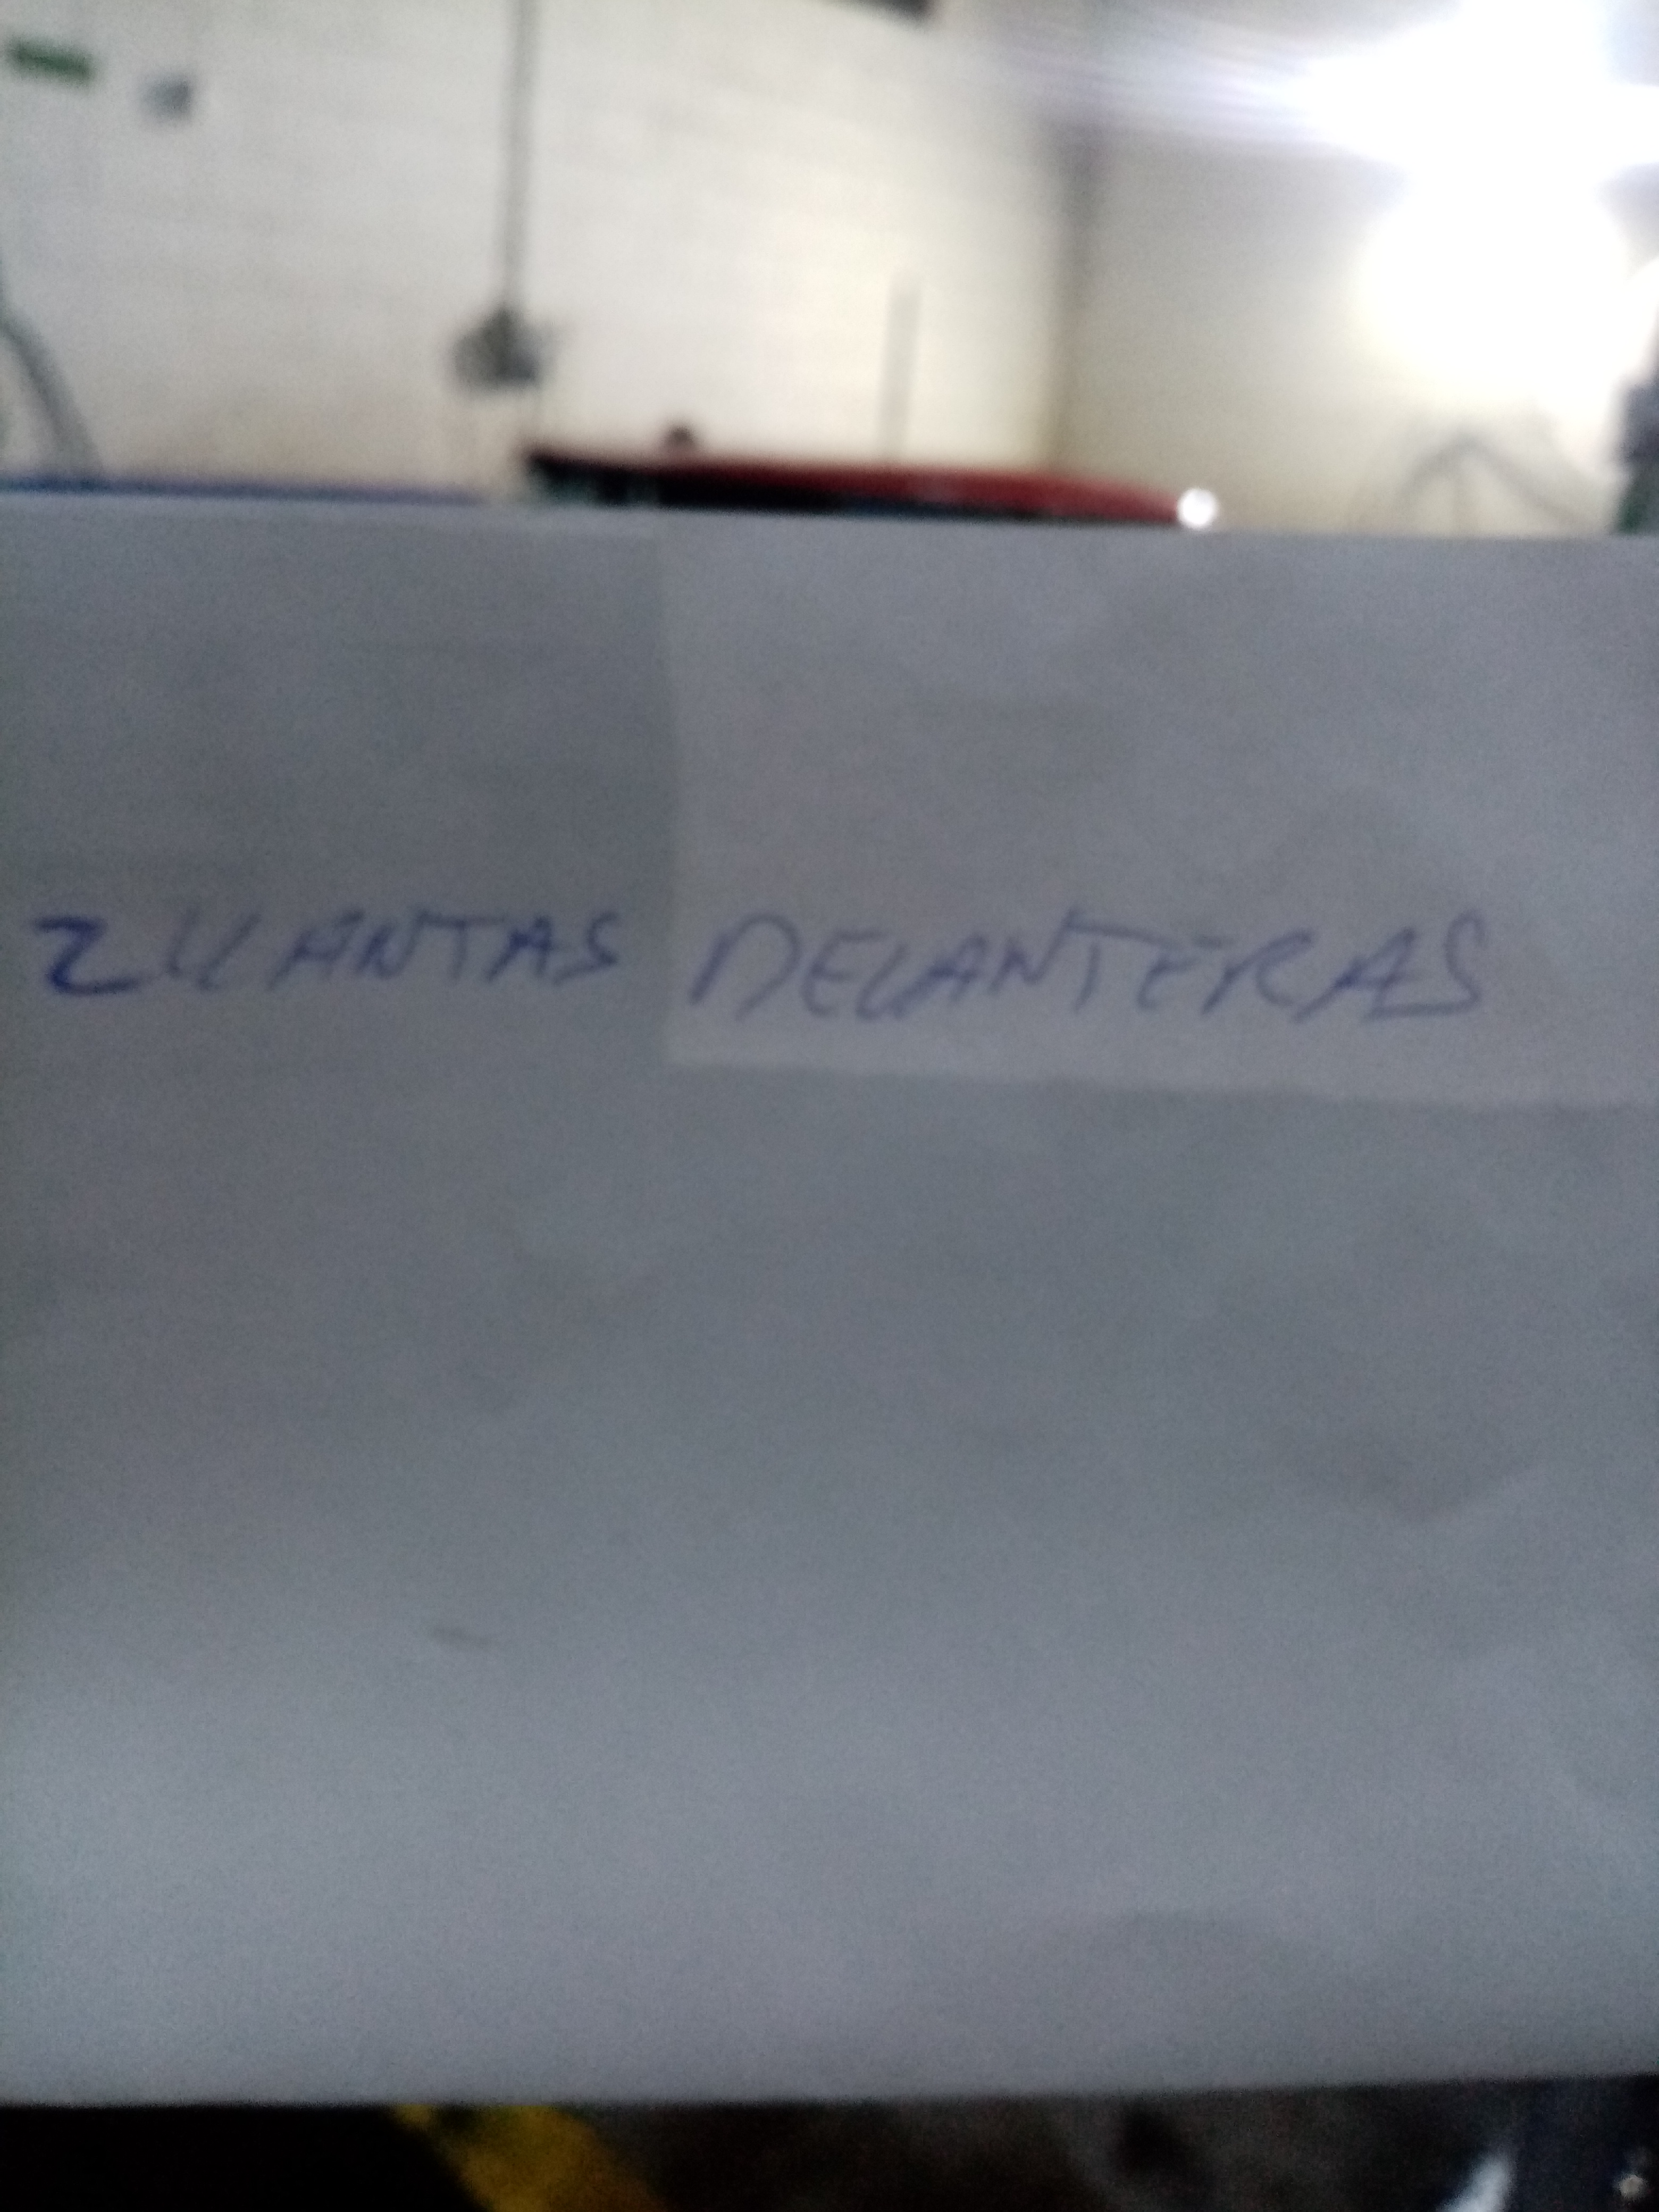 2 LLANTAS DELANTERAS